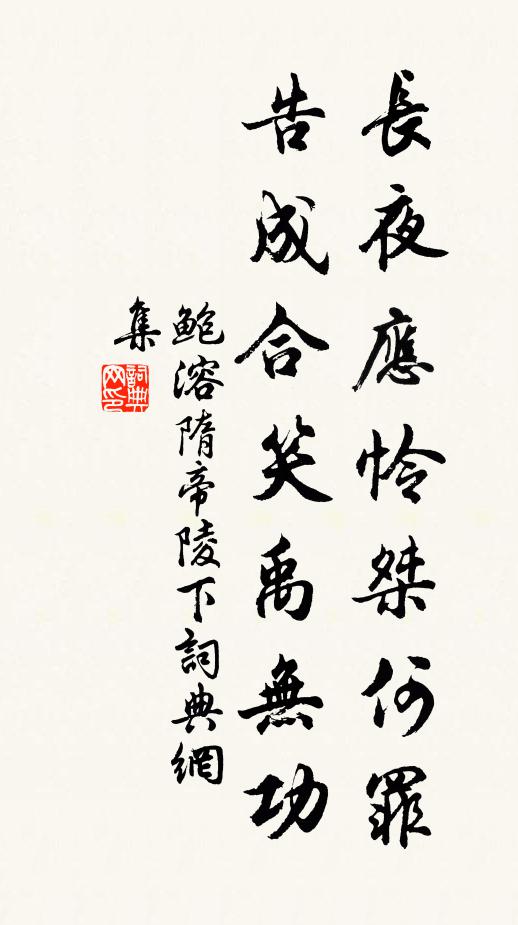 長夜應憐桀何罪
告成合笑禹無功
鲍溶隋帝陵下詞典網
集
詞典
网印